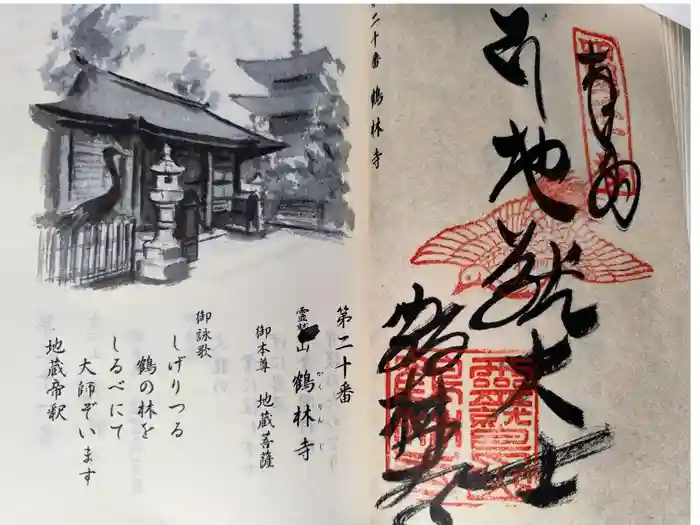 第二十番 鶴林寺
奉拝
地蔵大士
鶴林寺
第二十番
霊鷲山 鶴林寺
かくりんじ
御本尊 地蔵菩薩
御詠歌
しげりつる
鶴の林を
しるべにて
大師ぞいます
地蔵帝釈